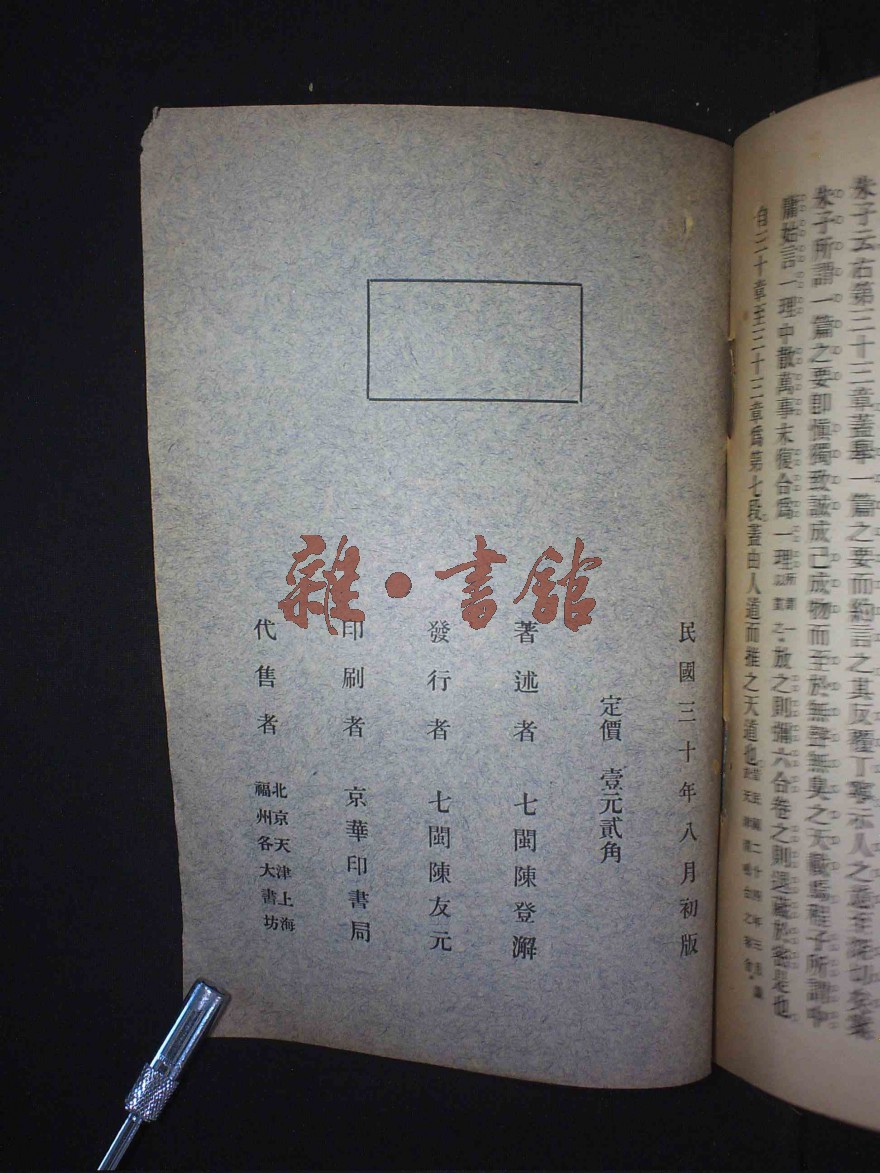 朱子云右第三十三章蓋舉一篇之要而約言之其反覆丁寧示人之意至深切矣
朱子所謂一篇之要卽愼獨致誠成己成物而至於無聲無臭之天載焉程子所謂中
庸始言一理中散萬事末復合爲一理所謂一以貫之放之則彌六合卷之則退藏於密是也
自二十章至三十三章爲第七段蓋由人道而推之天道也
民國三十年八月初版
定價 壹元貳角
著述者 七閩陳登澥
發行者 七閩陳友元
印刷者 京華印書局
代售者 北京天津上海
福州各大書坊
雜·書館